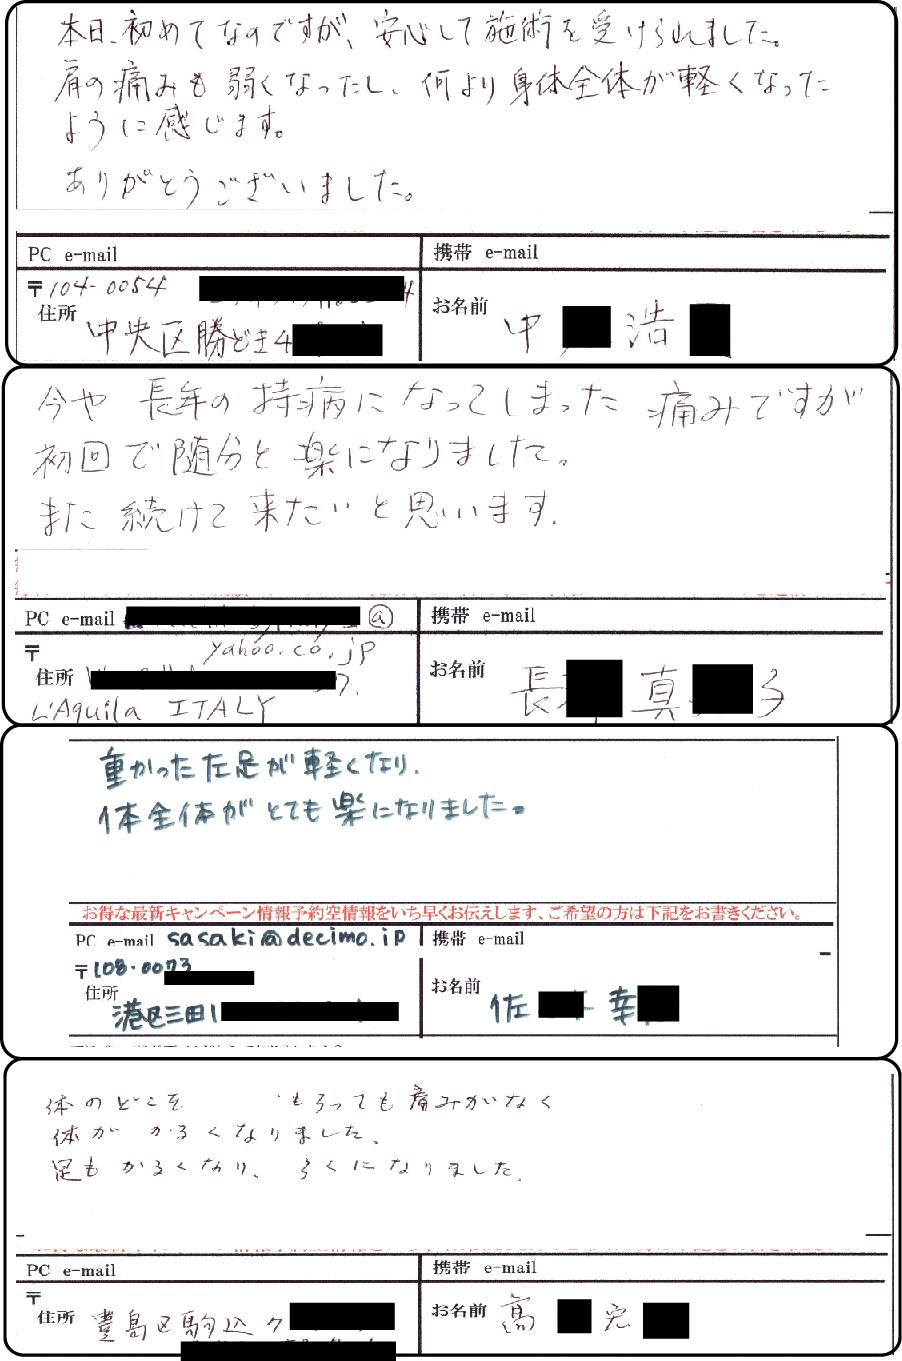 本日、初めてなのですが、安心して施術を受けられました。
肩の痛みも弱くなったし、何より身体全体が軽くなった
ように感じます。
ありがとうございました。
PC e-mail
携帯 e-mail
〒104-0054
住所
中央区勝どき4
お名前
中 浩
今や 長年の持病になってしまった 痛みですが
初回で随分と楽になりました。
また続けて来たいと思います.
PC e-mail @
yahoo.co.jp
携帯 e-mail
〒
住所
L'Aquila ITALY
お名前
長 真 子
重かった左足が軽くなり.
体全体がとても楽になりました。
お得な最新キャンペーン情報予約空情報をいち早くお伝えします、ご希望の方は下記をお書きください。
PC e-mail sasaki@decimo.jp
携帯 e-mail
〒108-0073
住所
港区三田1
お名前
佐 幸
体のどこを もらっても痛みがなく
体が かるくなりました、
足もかるくなり、らくになりました.
PC e-mail
携帯 e-mail
〒
住所
豊島区駒込7
お名前
高 宏